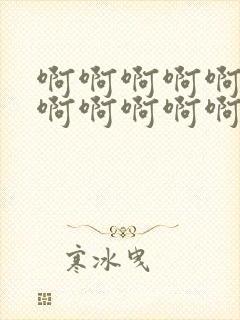 啊啊啊啊啊
啊啊啊啊啊
寒冰曳